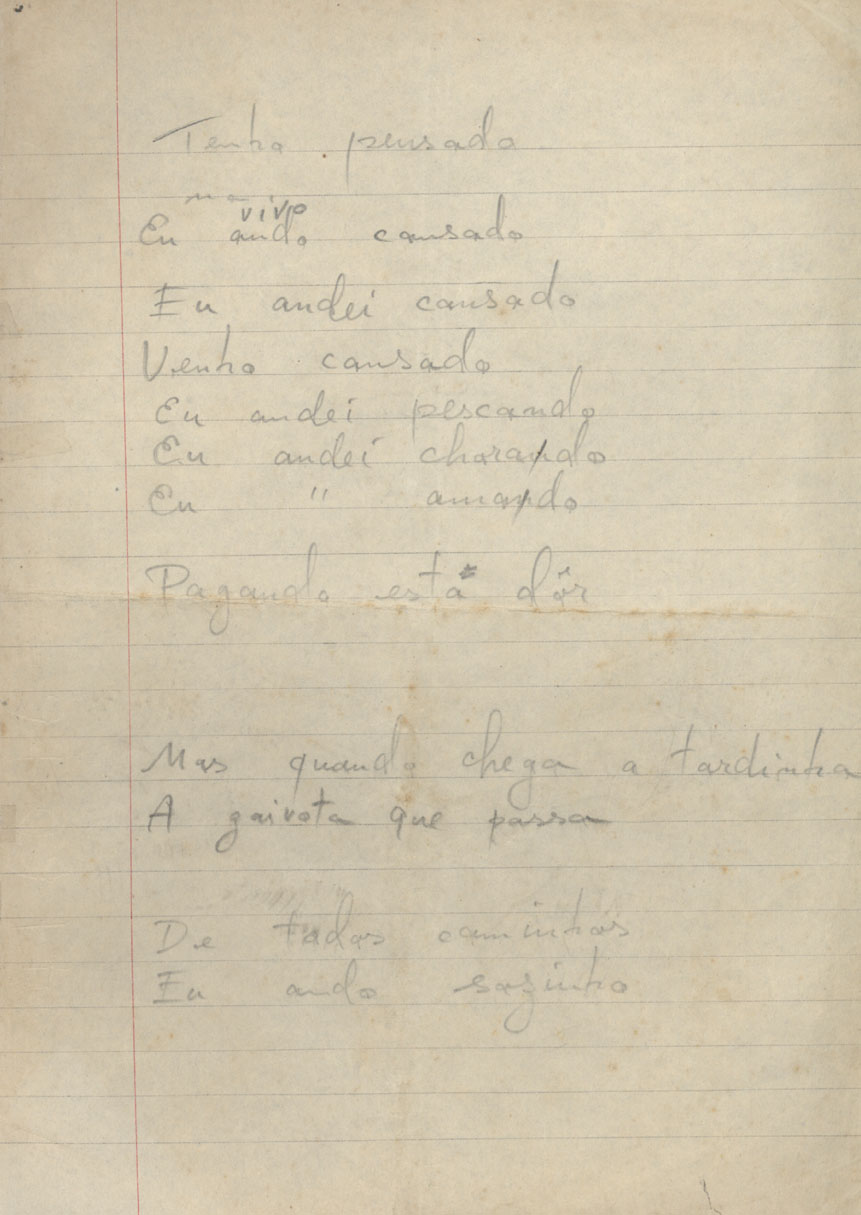 Tenho pensado
vivo
Eu ando cansado
Eu andei cansado
Venho cansado
Eu andei pescando
Eu andei chorando
Eu " amando
Pagando está dôr
Mas quando chega a tardinha
A gaivota que passa
De todos caminhos
Eu ando sozinho